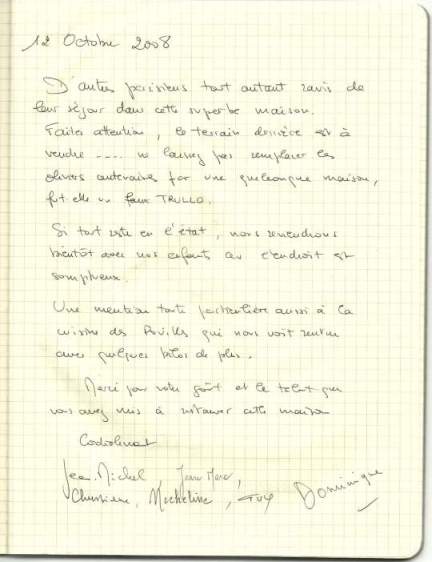 12 Octobre 2008
D'autres parisiens tout autant ravis de
leur séjour dans cette superbe maison.
Faites attention, le terrain derrière est à
vendre .... ne laissez pas remplacer les
oliviers centenaires par une quelconque maison,
fut elle un faux TRULLO.
Si tout reste en l'état, nous reviendrons
bientôt avec nos enfants car l'endroit est
somptueux.
Une mention toute particulière aussi à la
cuisine des Pouilles qui nous voit rentrer
avec quelques kilos de plus.
Merci pour votre goût et le talent que
vous avez mis à restaurer cette maison
Cordialement
Jean-Michel Jean Marc,
Christiane, Micheline, Guy Dominique